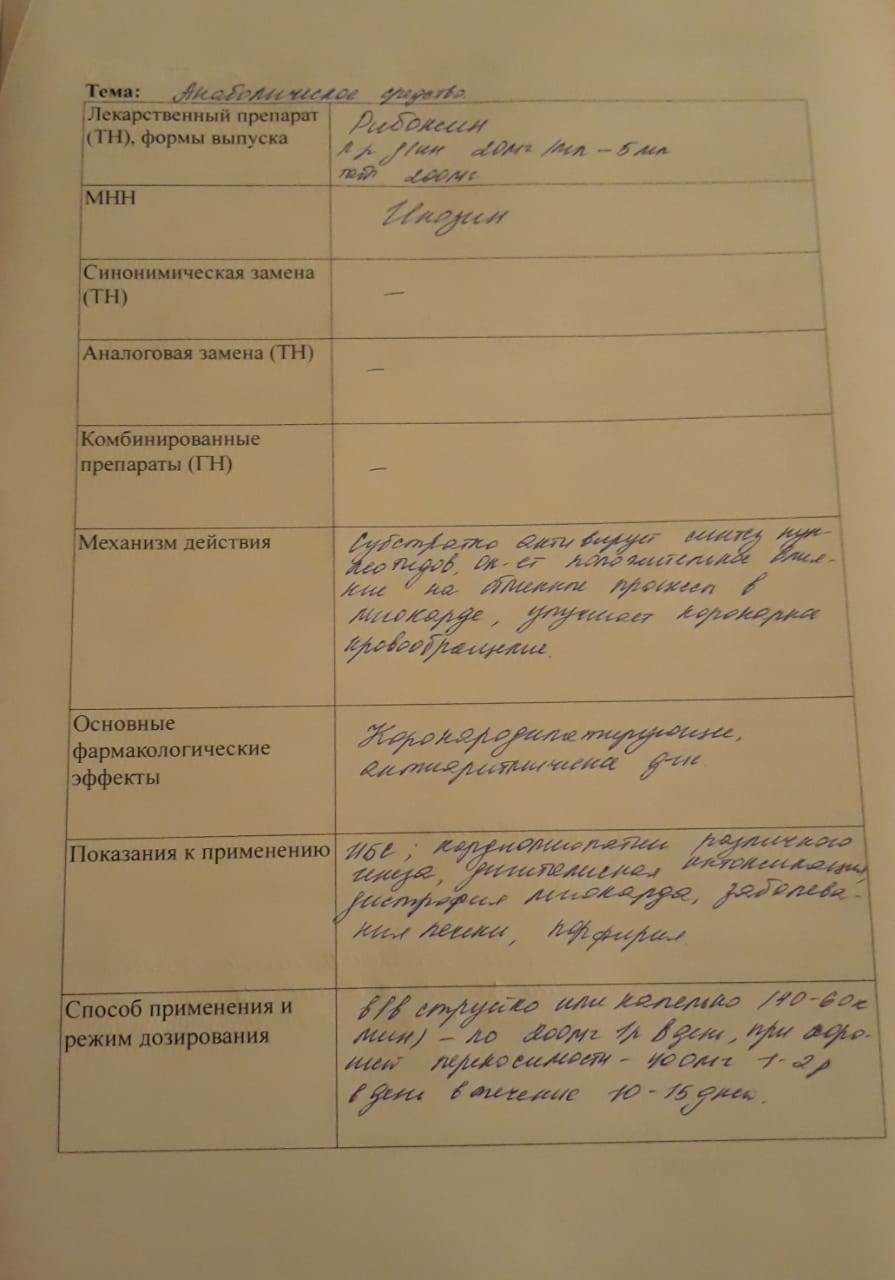 Тема: Анаболическое средство
Лекарственный препарат
(ТН), формы выпуска
Рибоксин
р-р д/ин 20мг/мл – 5 мл
таб 200мг
МНН
Инозин
Синонимическая замена
(ТН)
—
Аналоговая замена (ТН)
—
Комбинированные
препараты (ГН)
—
Механизм действия
Субстратно активирует синтез нук-
леотидов, ок-ет положительное влия-
ние на обменные процессы в
миокарде, улучшает коронарное
кровообращение.
Основные
фармакологические
эффекты
Коронародилатирующие,
антиаритмическа д-ие
Показания к применению
ИБС; кардиомиопатии различного
генеза, дигиталисная интоксикация,
дистрофия миокарда, заболева-
ния печени, порфирия
Способ применения и
режим дозирования
в/в струйно или капельно (40-60к
мин) – по 200мг 1р в день, при хоро-
шей переносимости – 400мг 1-2 р
в день в течение 10-15 дней.